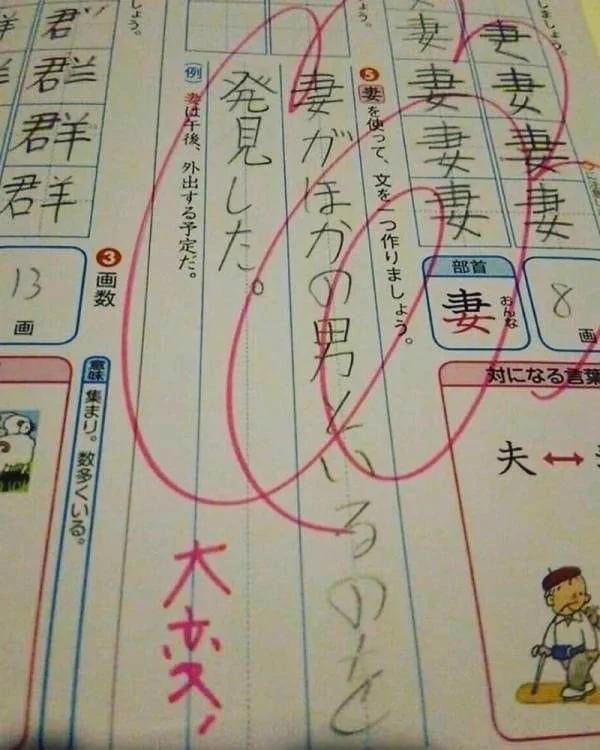 しましょう。
妻 妻 妻 妻
妻 妻 妻 妻
部首
妻
おんな
8
画
対になる言葉
夫 ↔
しょう。
❺ 妻を使って、文を一つ作りましょう。
妻がほかの男といるのを
発見した。
例 妻は午後、外出する予定だ。
大変!
しょう。
君 群 群 群
❸ 画数
13
画
意味 集まり。数多くいる。